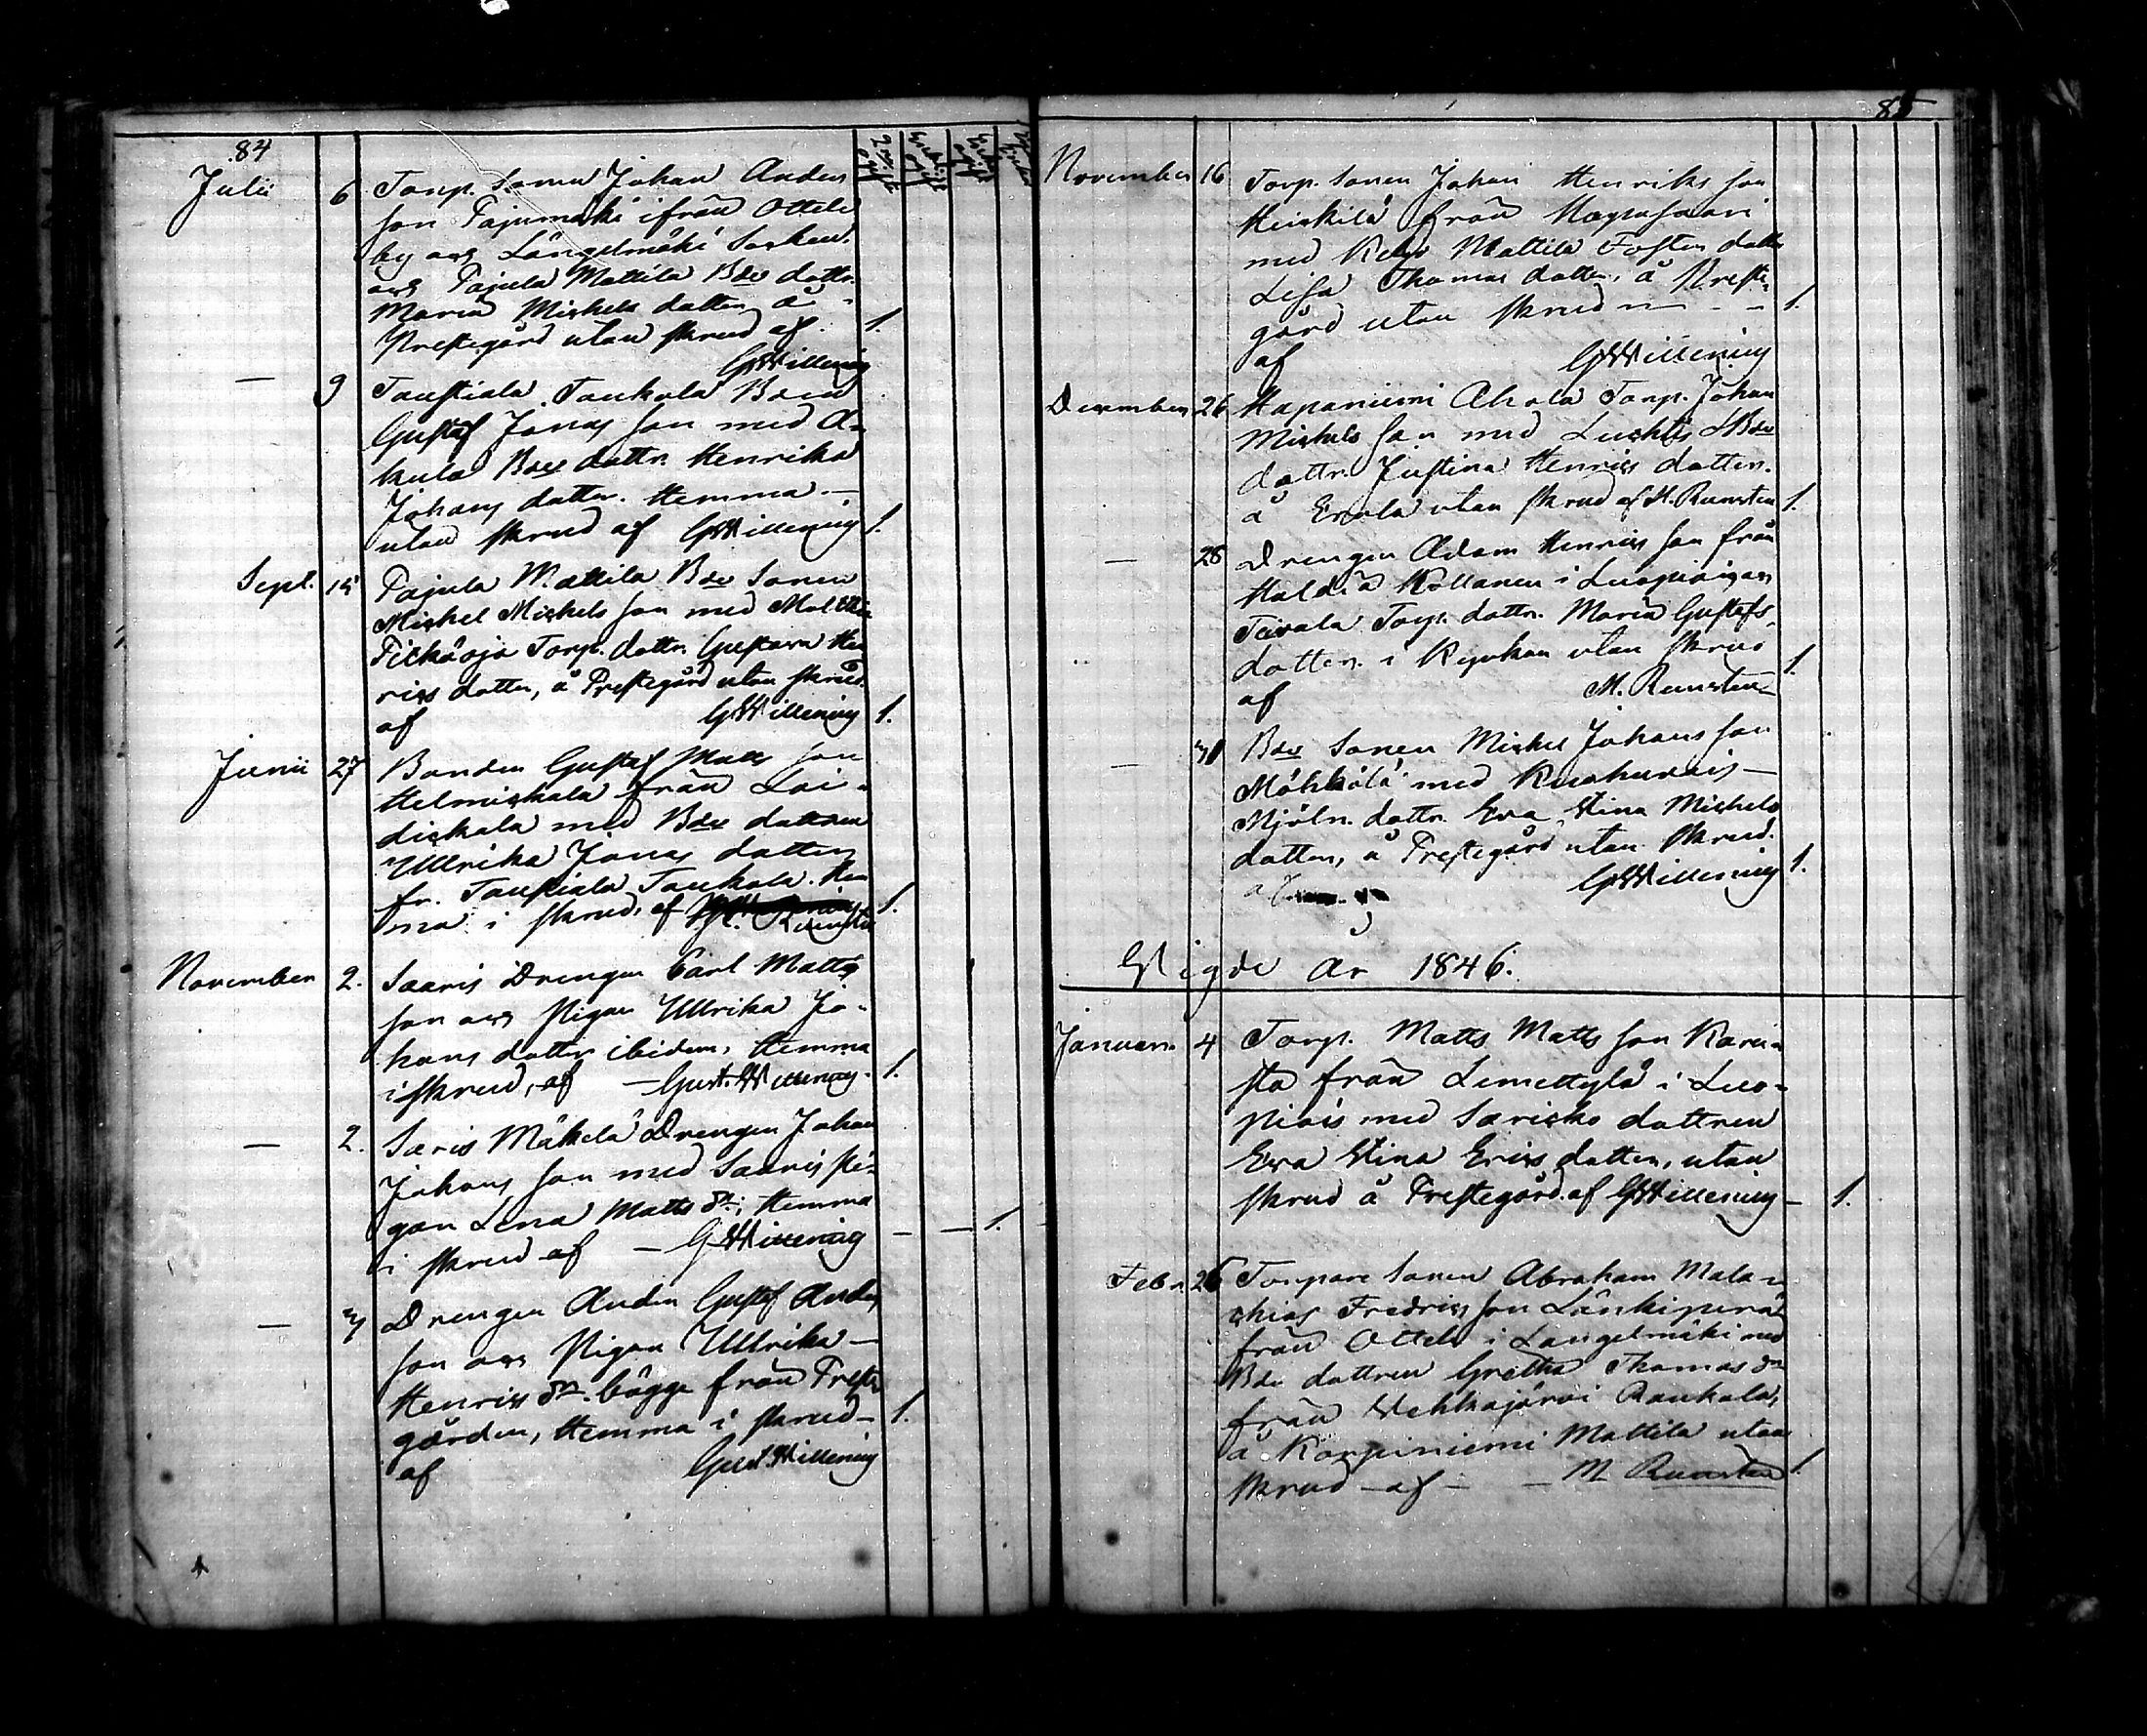 84
Julii 6 Torp. Sonen Johan Anders
son Pajumäki ifrån Attila
by och Längelmäki Socken.
och Pajula Mattila Bde dottr.
Maria Michels dotter å
Prestegård utan skrud af 1.
GWillening
— 9 Taustiala Taukola Bden
Gustaf Jonas son med A-
kula Bde dottr. Henrika
Johans dotter. Hemma —
utan skrud af GWillening 1.
Sept. 15 Pajula Mattila Bde Sonen
Michel Michels son med
Torp. dottr. Gustava Hen
rics dotter, å Prestegård utan skrud.
af GWillening 1.
Junii 27 Bonden Gustaf Matts son
Helmiskala från Lai-
dickala med Bde dottren
Ullrika Jonas dotter
fr. Taustiala Taukola. Hem
ma i skrud, af Runsten 1.
November 2. Saaris Drengen Carl Matts
son och Pigan Ullrika Jo-
hans dotter ibidem, Hemma
i skrud, af — Gust. Willening. 1.
— 2. Saris Mäkelä Drengen Johan
Johans son med Saaris Pi-
gan Lena Matts dr; Hemma
i skrud af — GWillening — — 1.
— 3 Drengen Anders Gustaf Anders
son och Pigan Ullrika —
Henrics dr. bägge från Preste
gården, Hemma i skrud — 1.
af Gust Willening
85
November 16 Torp. Sonen Johan Henriks son
Heikilä från Haapasaari
med Mattila Foster dottr
Lisa Thomas dotter, å Preste
gård utan skrud — — 1.
af GWillening
December 26 Haponiemi Ahola Torp. Johan
Michels son med Luchtis Bde
dottr. Justina Henrics dotter.
å Erola utan skrud af M. Runsten 1.
— 28 Drengen Adam Henrics son från
Haldia Kollanen i Luopiois och
Torp. dottr. Maria Gustafs
dotter. i utan skrud 1.
af M. Runsten
— 31 Bde Sonen Michel Johans son
Möhkölä med —
Mjöln. dottr. Eva Stina Michels
dotter, å Prestegård utan skrud.
GWillening 1.
Wigde År 1846.
Januari. 4 Torp. Matts Matts son Kari-
sta från Lemettylä i Luo-
piois med Saricko dottren
Eva Stina Erics dotter, utan
skrud å Prestegård. af GWillening — 1.
Febr. 26 Torpare Sonen Abraham Mala-
chias Fredrics son Länkiperä
från Attila i Langelmäki med
Bde dottren Gretha Thomas dr
från Wehkajärvi Raukola,
å Korpiniemi Mattila utan
skrud — af — — M Runsten 1.